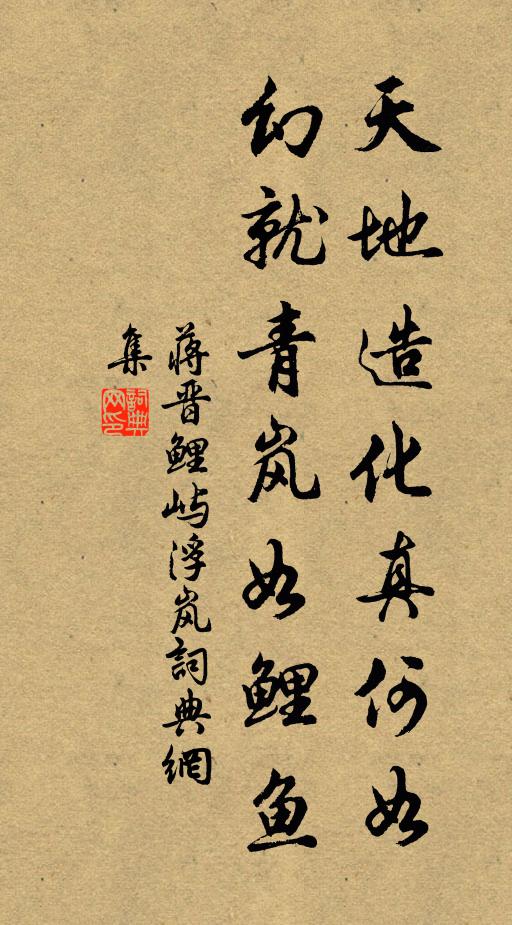 天地造化真何如
幻就青岚如鲤鱼
蒋晋鲤屿浮岚詞典網
集
詞典
网印